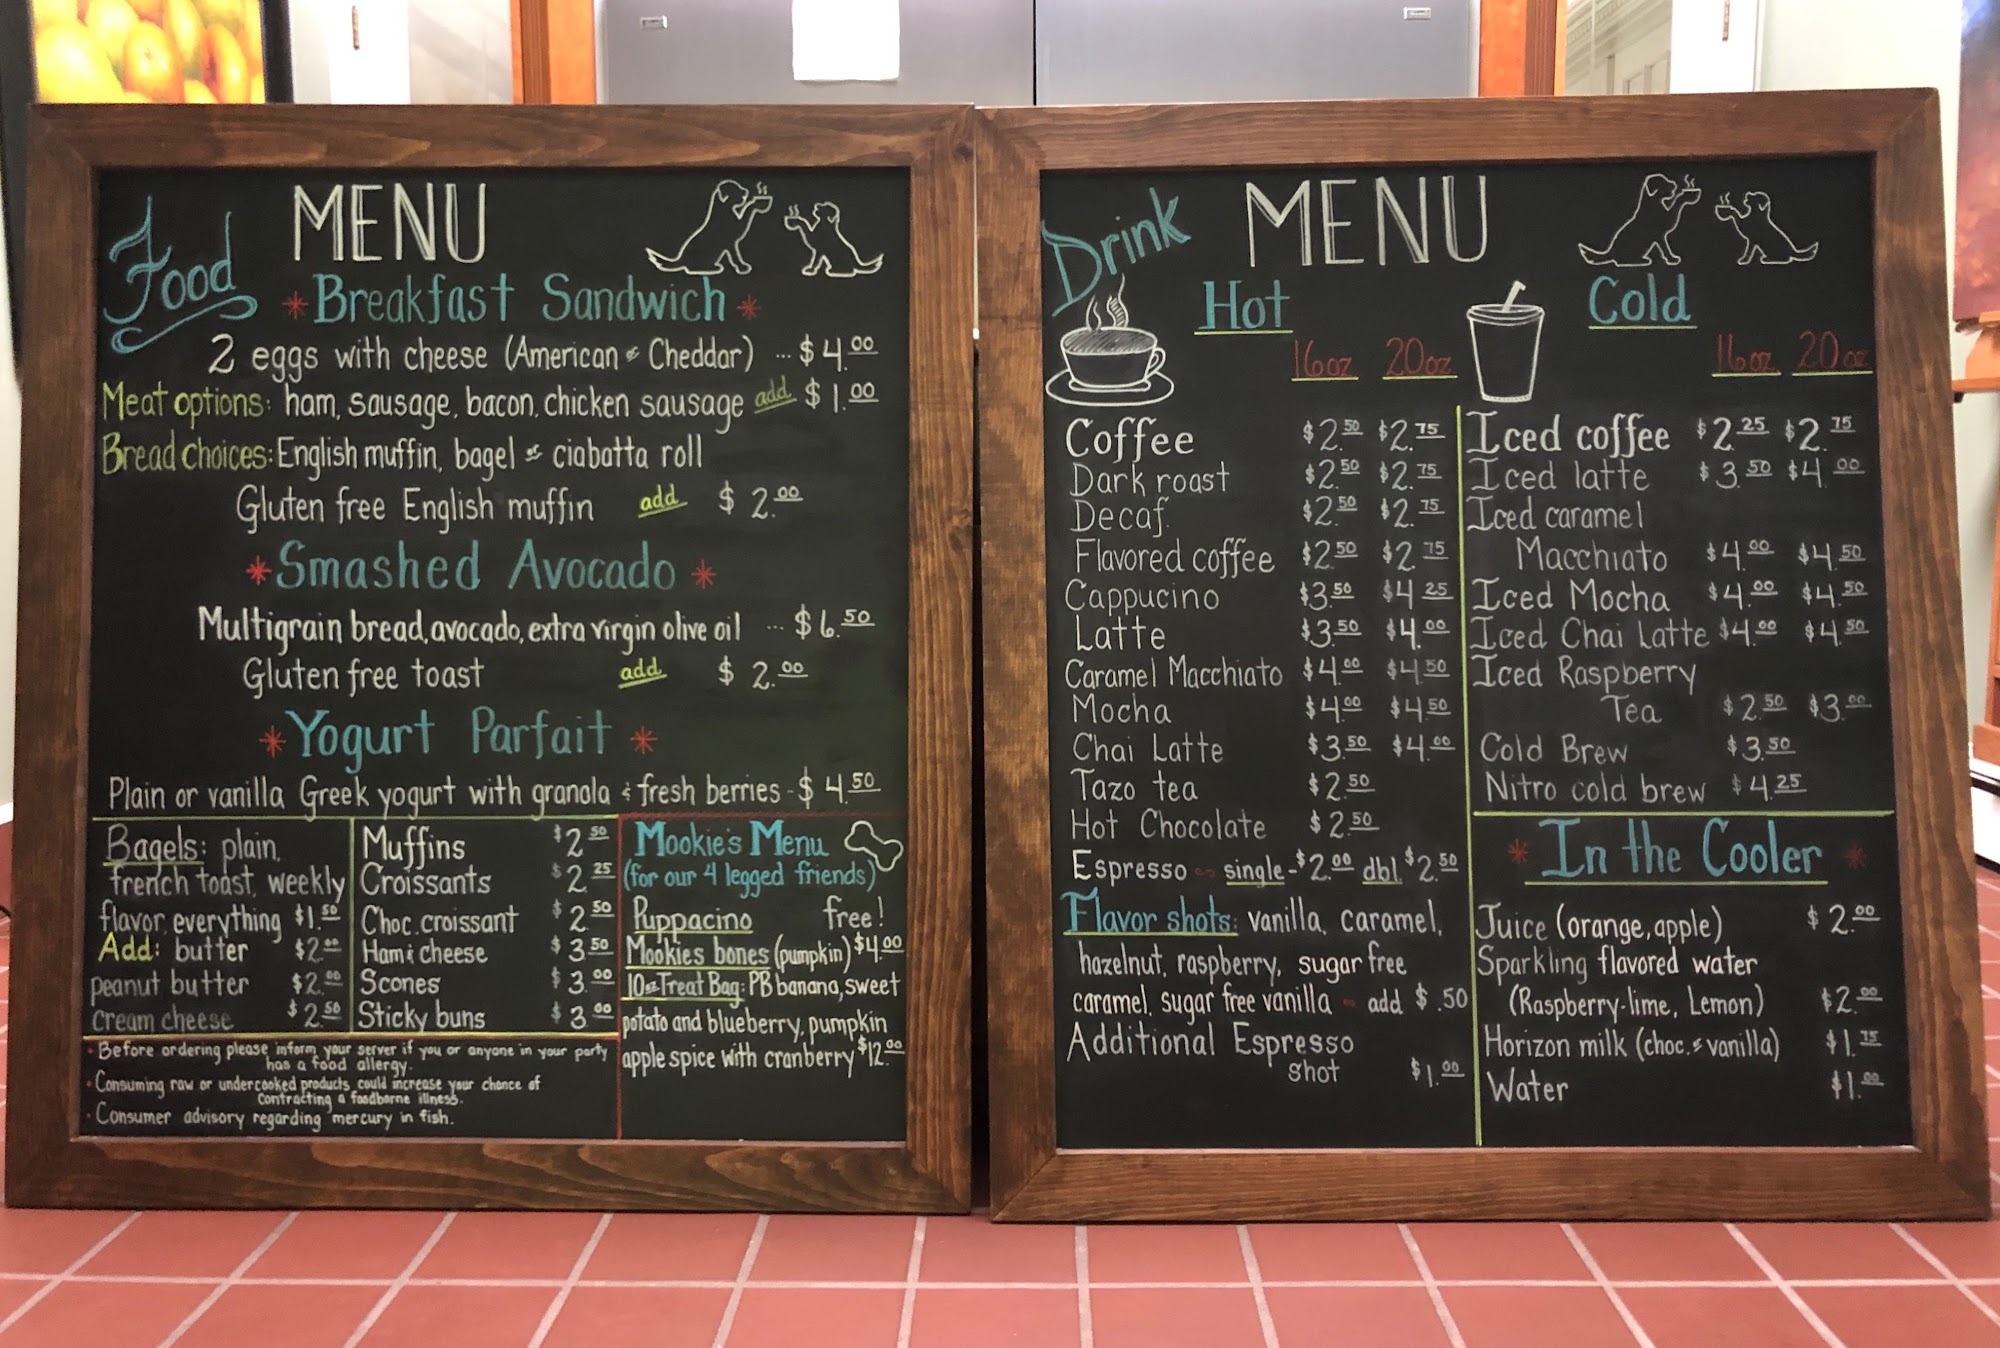 Food MENU
* Breakfast Sandwich *
2 eggs with cheese (American or Cheddar) ... $4.00
Meat options: ham, sausage, bacon, chicken sausage add $1.00
Bread choices: English muffin, bagel or ciabatta roll
Gluten free English muffin add $2.00
* Smashed Avocado *
Multigrain bread, avocado, extra virgin olive oil ... $6.50
Gluten free toast add $2.00
* Yogurt Parfait *
Plain or vanilla Greek yogurt with granola & fresh berries - $4.50
Bagels: plain,
french toast, weekly
flavor, everything $1.50
Add: butter $2.00
peanut butter $2.00
cream cheese $2.50
Muffins $2.50
Croissants $2.25
Choc. croissant $2.50
Ham & cheese $3.50
Scones $3.00
Sticky buns $3.00
Mookie's Menu
(for our 4 legged friends)
Puppacino free!
Mookies bones (pumpkin) $4.00
10oz Treat Bag: PB banana, sweet
potato and blueberry, pumpkin
apple spice with cranberry $12.00
· Before ordering please inform your server if you or anyone in your party
has a food allergy.
· Consuming raw or undercooked products could increase your chance of
contracting a foodborne illness.
· Consumer advisory regarding mercury in fish.
Drink MENU
Hot
16oz 20oz
Coffee $2.50 $2.75
Dark roast $2.50 $2.75
Decaf $2.50 $2.75
Flavored coffee $2.50 $2.75
Cappucino $3.50 $4.25
Latte $3.50 $4.00
Caramel Macchiato $4.00 $4.50
Mocha $4.00 $4.50
Chai Latte $3.50 $4.00
Tazo tea $2.50
Hot Chocolate $2.50
Espresso ~ single - $2.00 dbl $2.50
Flavor shots: vanilla, caramel,
hazelnut, raspberry, sugar free
caramel, sugar free vanilla ~ add $.50
Additional Espresso
shot $1.00
Cold
16oz 20oz
Iced coffee $2.25 $2.75
Iced latte $3.50 $4.00
Iced caramel
Macchiato $4.00 $4.50
Iced Mocha $4.00 $4.50
Iced Chai Latte $4.00 $4.50
Iced Raspberry
Tea $2.50 $3.00
Cold Brew $3.50
Nitro cold brew $4.25
* In the Cooler *
Juice (orange, apple) $2.00
Sparkling flavored water
(Raspberry-lime, Lemon) $2.00
Horizon milk (choc. & vanilla) $1.75
Water $1.00